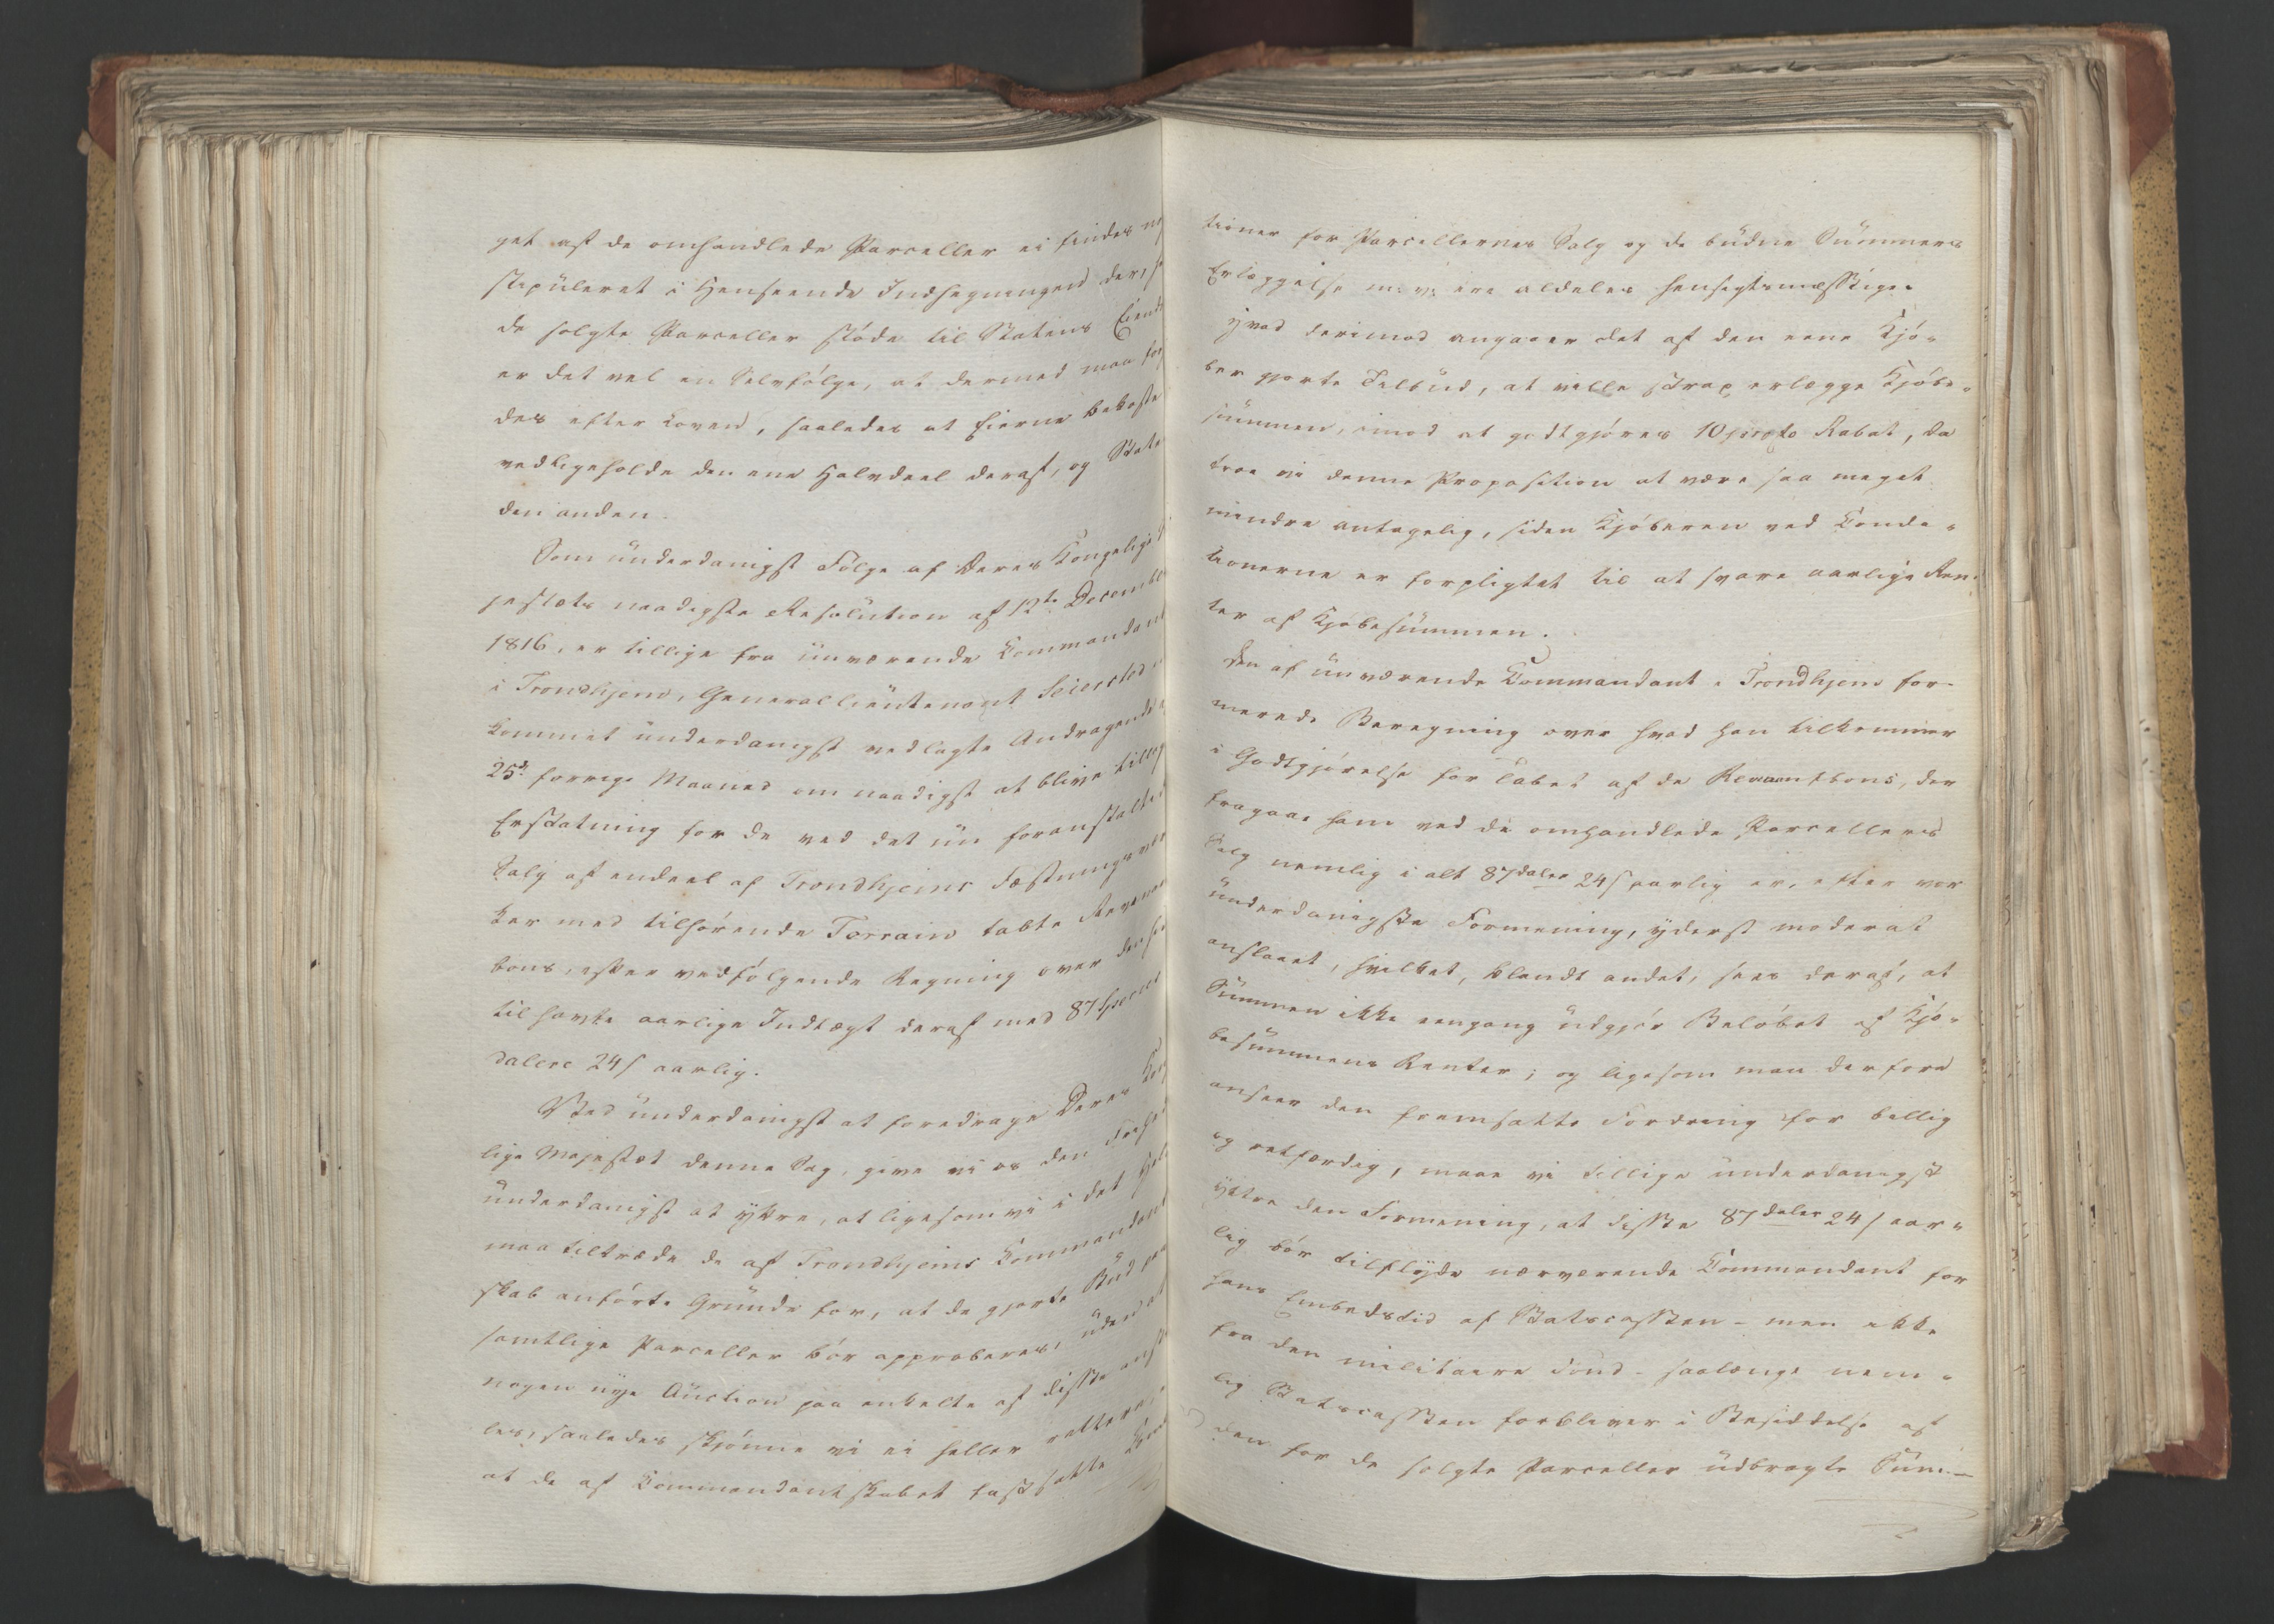 get af de omhandlede Parceller ei findes
stipuleret i Henseende Indhegningen der,
de solgte Parceller støde til Statens Eiend
er det vel en Selvfølge, at dermed maa for
des efter Loven, saaledes at Eierne bekoste
vedligeholde den ene Halvdeel deraf, og State
den anden.
Som underdanigst Følge af Deres Kongelige
jestæts naadigste Resolution af 12te Decembe
1816, er tillige fra nuværende Commandant
i Trondhjem, Generallieutenant Seiersted
kommet underdanigst vedlagte Andragende
25de forrige Maaned om naadigst at blive tillag
Erstatning for de ved det nu foranstalted
Salg af endeel af Trondhjems Fæstningsvær
ker med tilhørende Terrain tabte Revenu
bons, efter vedfølgende Regning over den
tilhavte aarlige Indtægt deraf med 87 Species
dalere 24 s aarlig.
Ved underdanigst at foredrage Deres Kong
lige Majestæt denne Sag, give vi os den Frihed
underdanigst at yttre, at ligesom vi i det Hele
maa tiltræde de af Trondhjems Commandant
skab anførte Grunde for, at de gjorte Bud paa
samtlige Parceller bør approberes, uden at
nogen nye Auction paa enkelte af disse anst
les, saaledes skjønne vi ei heller rettere,
at de af Commandantskabet fastsatte Cond
tioner for Parcellernes Salg og de budne Summers
Erlæggelse m. v. ere aldeles hensigtsmæssige.
Hvad derimod angaaer det af den eene Kjø-
ber gjorte Tilbud, at ville strax erlægge Kjøbe-
summen, imod at godtgjøres 10 procto Rabat, da
troe vi denne Proposition at være saa meget
mindre antagelig, siden Kjøberen ved Condi-
tionerne er forpligtet til at svare aarlige Ren-
ter af Kjøbesummen.
Den af nuværende Commandant i Trondhjem for-
merede Beregning over hvad han tilkommer
i Godtgjørelse for Tabet af de Revenusbons, der
fragaae ham ved de omhandlede Parcellers
Salg nemlig i alt 87 daler 24 s aarlig er, efter vor
underdanigste Formening, yderst moderat
anslaaet, hvilket, blandt andet, sees deraf, at
Summen ikke eengang udgjør Beløbet af Kjø-
besummens Renter; og ligesom man derfore
anseer den fremsatte Fordring for billig
og retfærdig, maae vi tillige underdanigst
yttre den Formening, at disse 87 daler 24 s aar-
lig bør tilflyde nærværende Commandant for
hans Embedstid af Statscassen - men ikke
fra den militaire Fond - saalænge nem-
lig Statscassen forbliver i Besiddelse af
den for de solgte Parceller udbragte Sum-